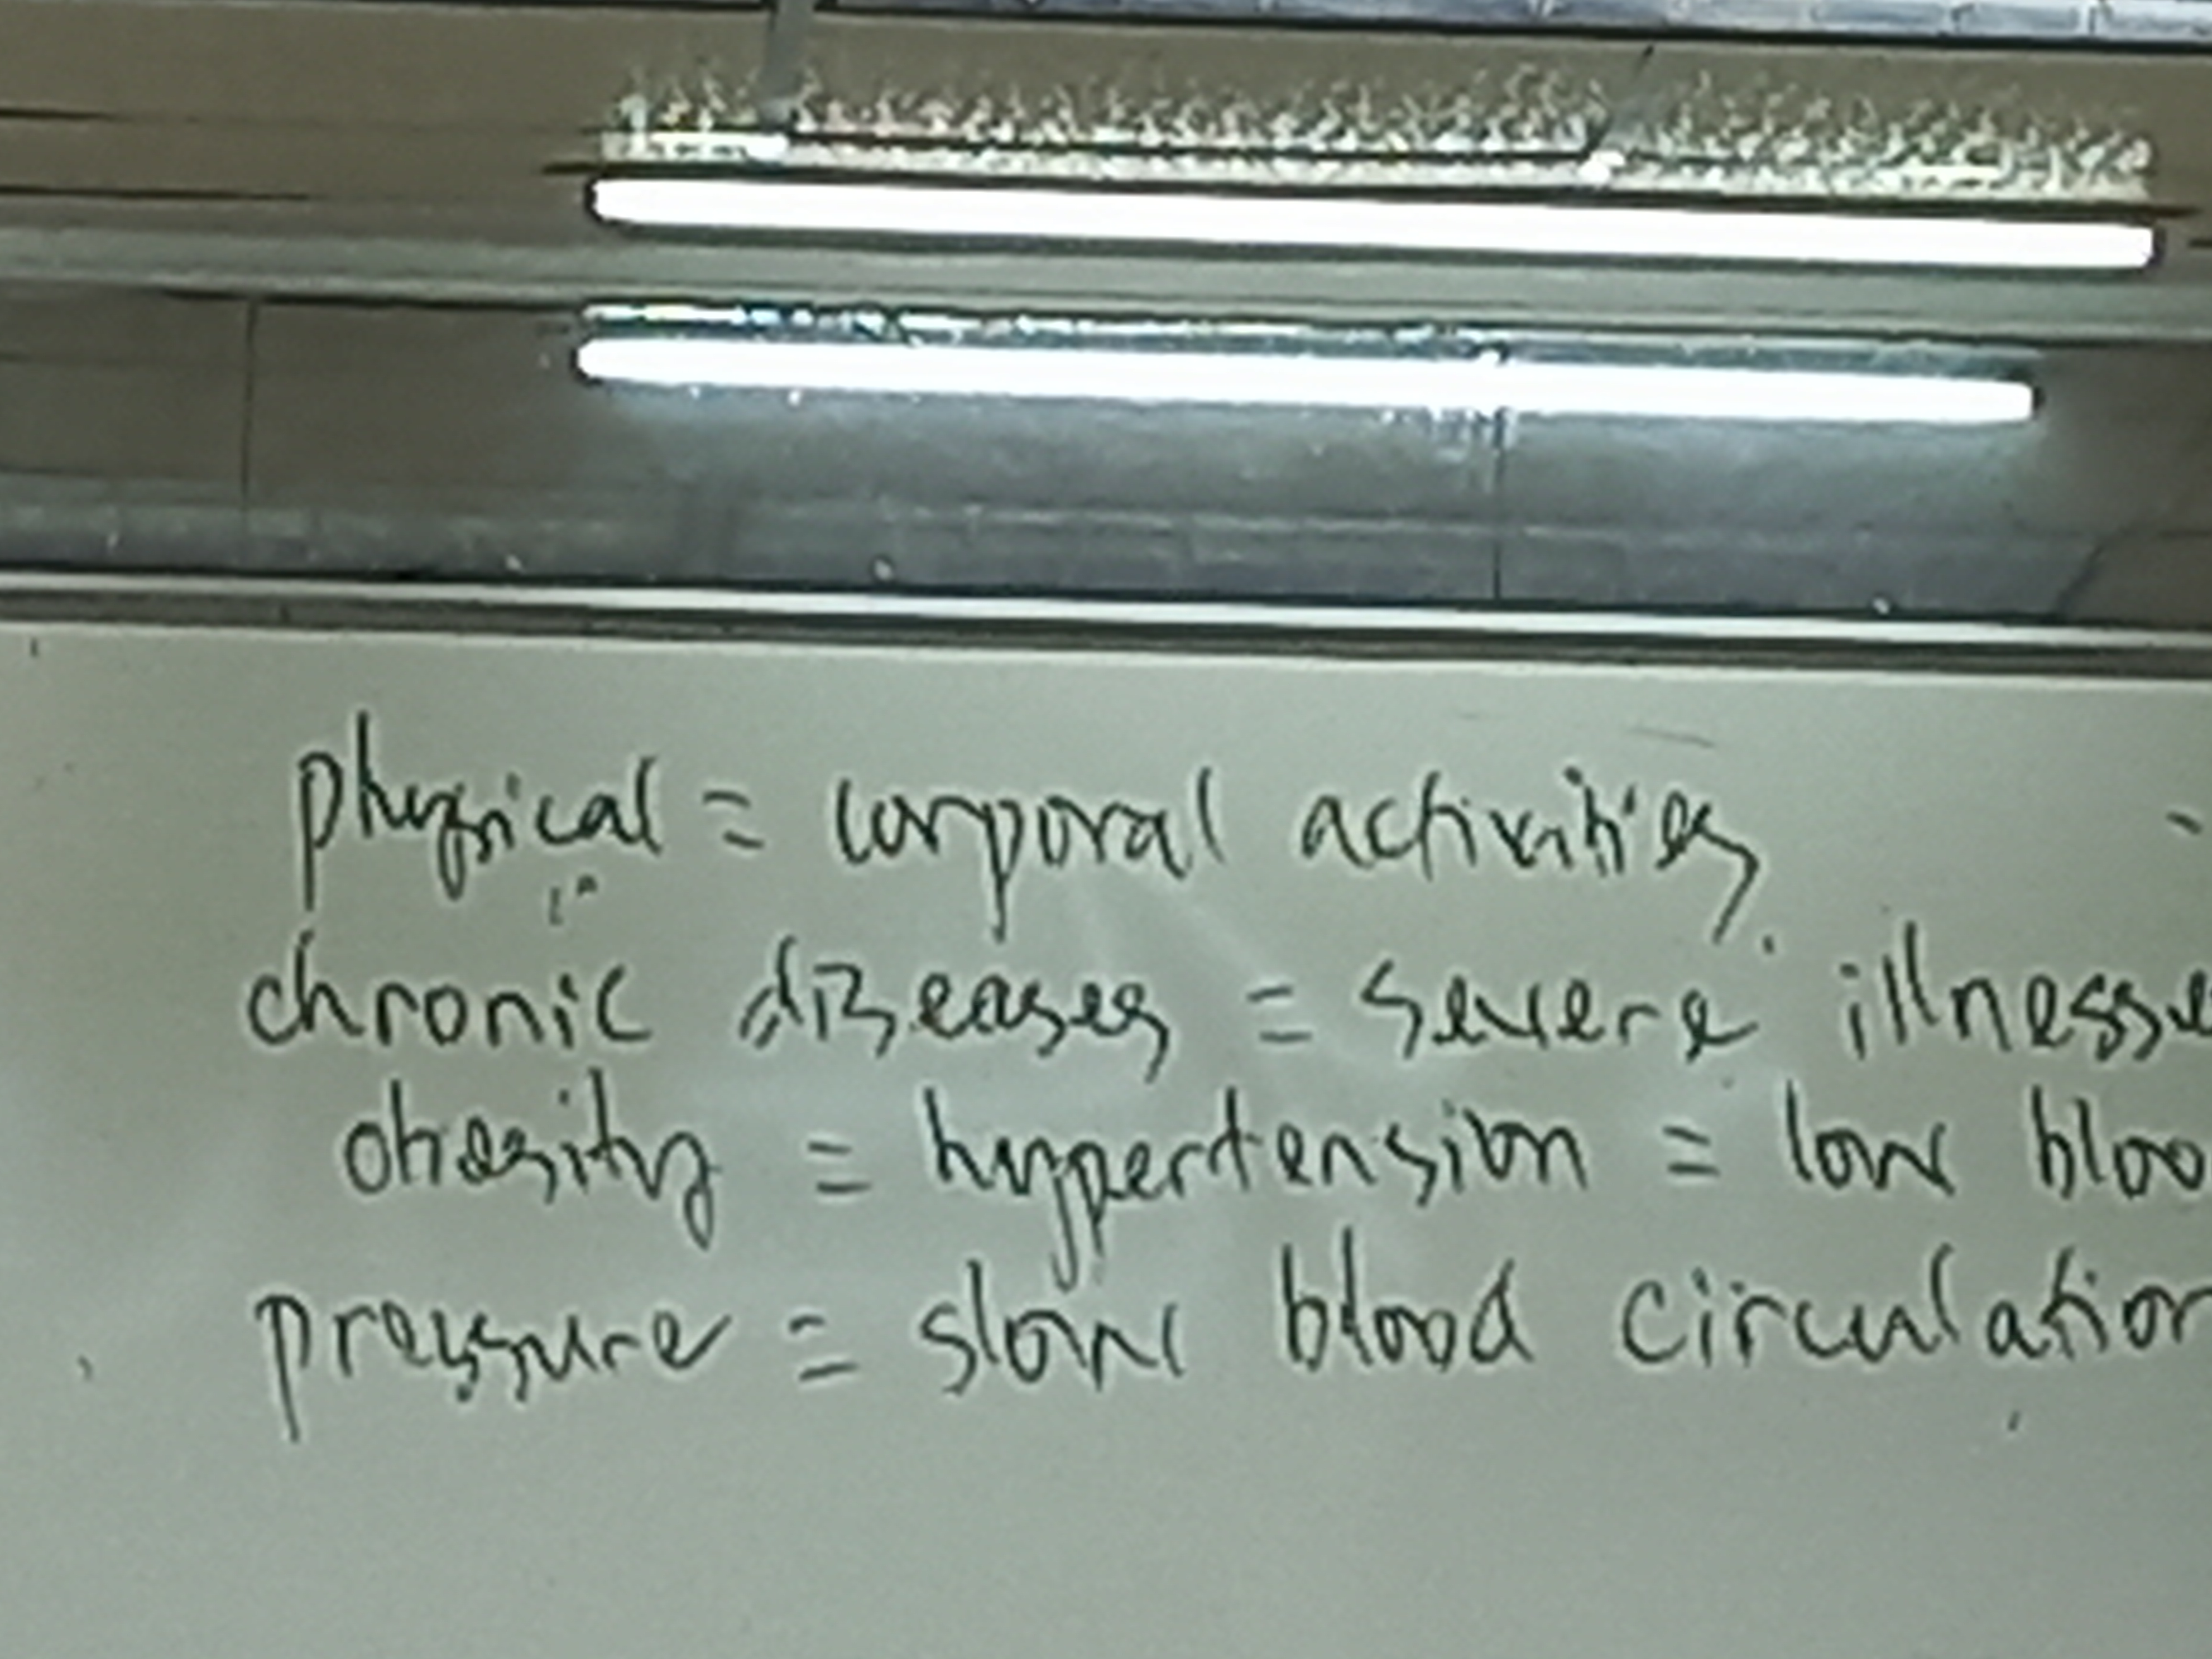 physical = corporal activities
chronic diseases = severe illnesse
obesity = hypertension = low bloo
pressure = slow blood circulation